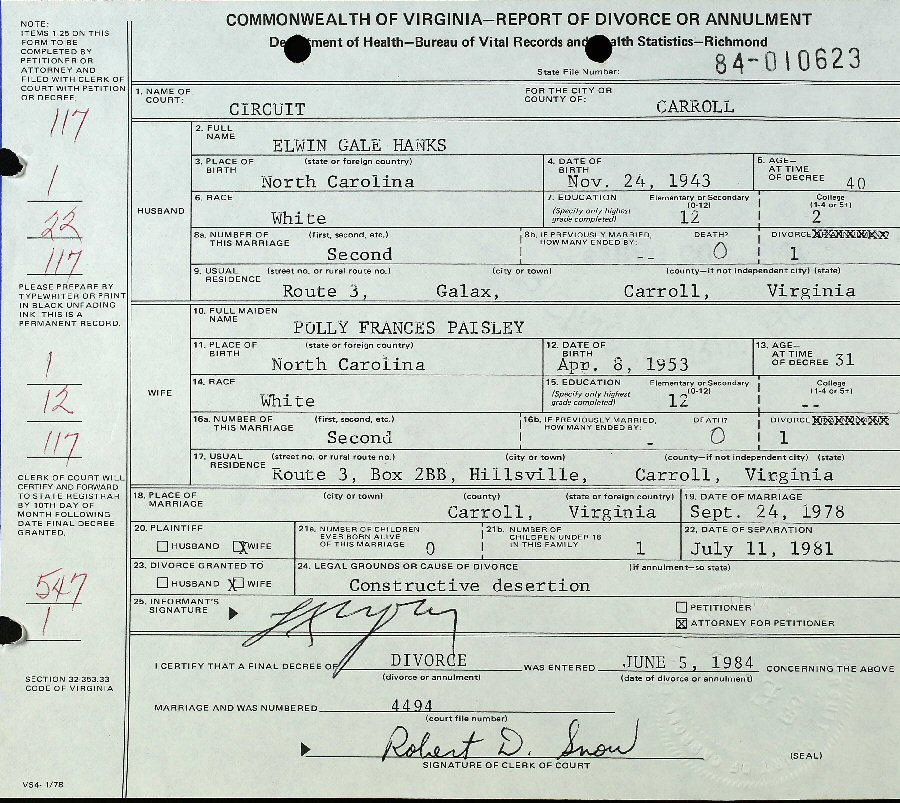 COMMONWEALTH OF VIRGINIA—REPORT OF DIVORCE OR ANNULMENT
Department of Health—Bureau of Vital Records and Health Statistics—Richmond
State File Number: 84-010623
NOTE:
ITEMS 1-25 ON THIS
FORM TO BE
COMPLETED BY
PETITIONER OR
ATTORNEY AND
FILED WITH CLERK OF
COURT WITH PETITION
OR DECREE.
117
1
22
117
PLEASE PREPARE BY
TYPEWRITER OR PRINT
IN BLACK UNFADING
INK. THIS IS A
PERMANENT RECORD.
1
12
117
CLERK OF COURT WILL
CERTIFY AND FORWARD
TO STATE REGISTRAR
BY 10TH DAY OF
MONTH FOLLOWING
DATE FINAL DECREE
GRANTED.
547
1
SECTION 32-353.33
CODE OF VIRGINIA
VS4- 1/78
1. NAME OF COURT: CIRCUIT FOR THE CITY OR COUNTY OF: CARROLL
HUSBAND
2. FULL NAME ELWIN GALE HANKS
3. PLACE OF BIRTH (state or foreign country) North Carolina
4. DATE OF BIRTH Nov. 24, 1943
5. AGE— AT TIME OF DECREE 40
6. RACE White
7. EDUCATION (Specify only highest grade completed) Elementary or Secondary (0-12) 12 College (1-4 or 5+) 2
8a. NUMBER OF THIS MARRIAGE (first, second, etc.) Second
8b. IF PREVIOUSLY MARRIED, HOW MANY ENDED BY: -- DEATH? 0 DIVORCE 1
9. USUAL RESIDENCE (street no. or rural route no.) (city or town) (county—if not independent city) (state)
Route 3, Galax, Carroll, Virginia
WIFE
10. FULL MAIDEN NAME POLLY FRANCES PAISLEY
11. PLACE OF BIRTH (state or foreign country) North Carolina
12. DATE OF BIRTH Apr. 8, 1953
13. AGE— AT TIME OF DECREE 31
14. RACE White
15. EDUCATION (Specify only highest grade completed) Elementary or Secondary (0-12) 12 College (1-4 or 5+) --
16a. NUMBER OF THIS MARRIAGE (first, second, etc.) Second
16b. IF PREVIOUSLY MARRIED, HOW MANY ENDED BY: - DEATH? 0 DIVORCE 1
17. USUAL RESIDENCE (street no. or rural route no.) (city or town) (county—if not independent city) (state)
Route 3, Box 2BB, Hillsville, Carroll, Virginia
18. PLACE OF MARRIAGE (city or town) (county) (state or foreign country) Carroll, Virginia
19. DATE OF MARRIAGE Sept. 24, 1978
20. PLAINTIFF HUSBAND X WIFE
21a. NUMBER OF CHILDREN EVER BORN ALIVE OF THIS MARRIAGE 0
21b. NUMBER OF CHILDREN UNDER 18 IN THIS FAMILY 1
22. DATE OF SEPARATION July 11, 1981
23. DIVORCE GRANTED TO HUSBAND X WIFE
24. LEGAL GROUNDS OR CAUSE OF DIVORCE (If annulment—so state)
Constructive desertion
25. INFORMANT'S SIGNATURE
PETITIONER
X ATTORNEY FOR PETITIONER
I CERTIFY THAT A FINAL DECREE OF DIVORCE WAS ENTERED JUNE 5, 1984 CONCERNING THE ABOVE
(divorce or annulment) (date of divorce or annulment)
MARRIAGE AND WAS NUMBERED 4494
(court file number)
Robert D. Snow
SIGNATURE OF CLERK OF COURT
(SEAL)